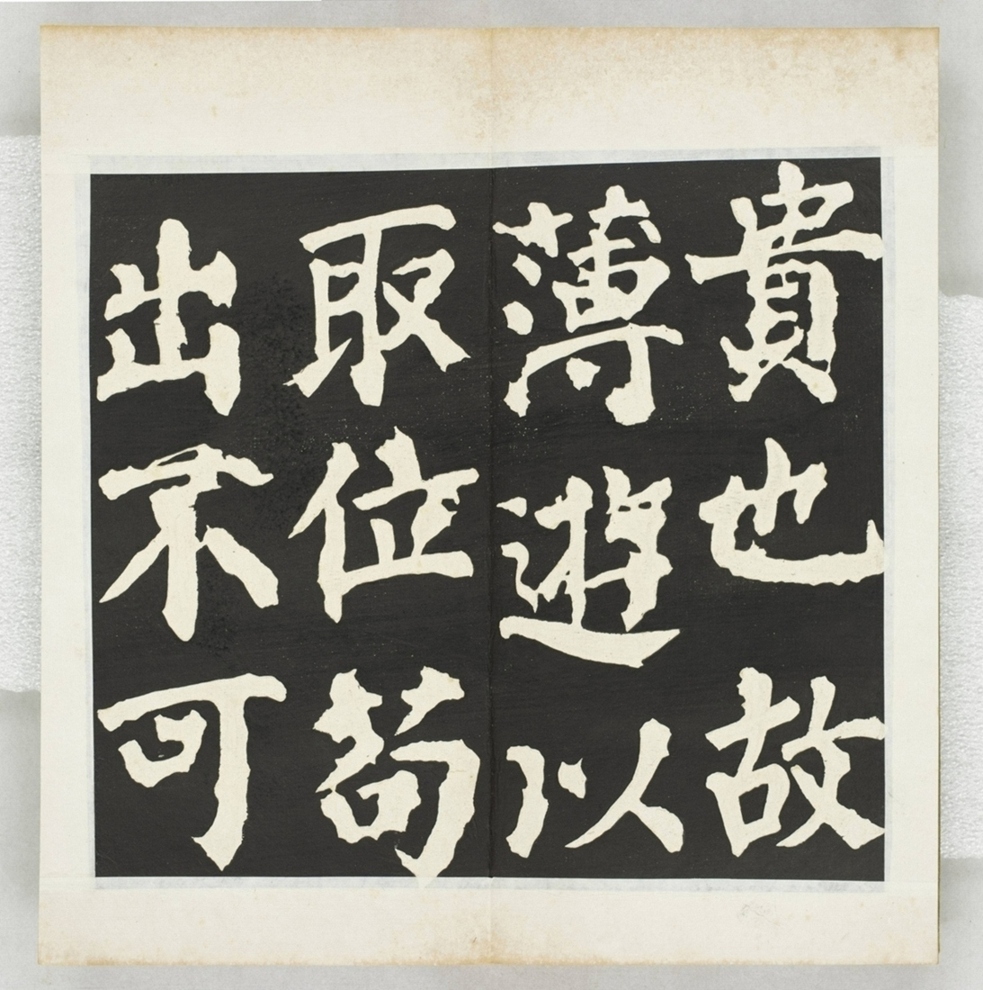 貴也故
薄遊以
取位苟
出不可